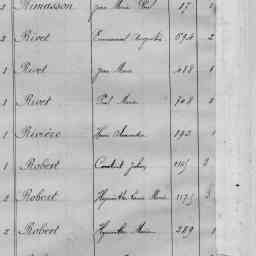 2 Rimasson Jean Marie Paul 17
2 Rivet Emmanuel Auguste 694 2
1 Rivet Jean Marie 418 1
1 Rivet Paul Marie 708 1
1 Rivière Alexandre 193 1
1 Robert Constant Julien
2 Robert Hyacinthe Louis Marie 1175 3
2 Robert Hyacinthe Marie 289 1